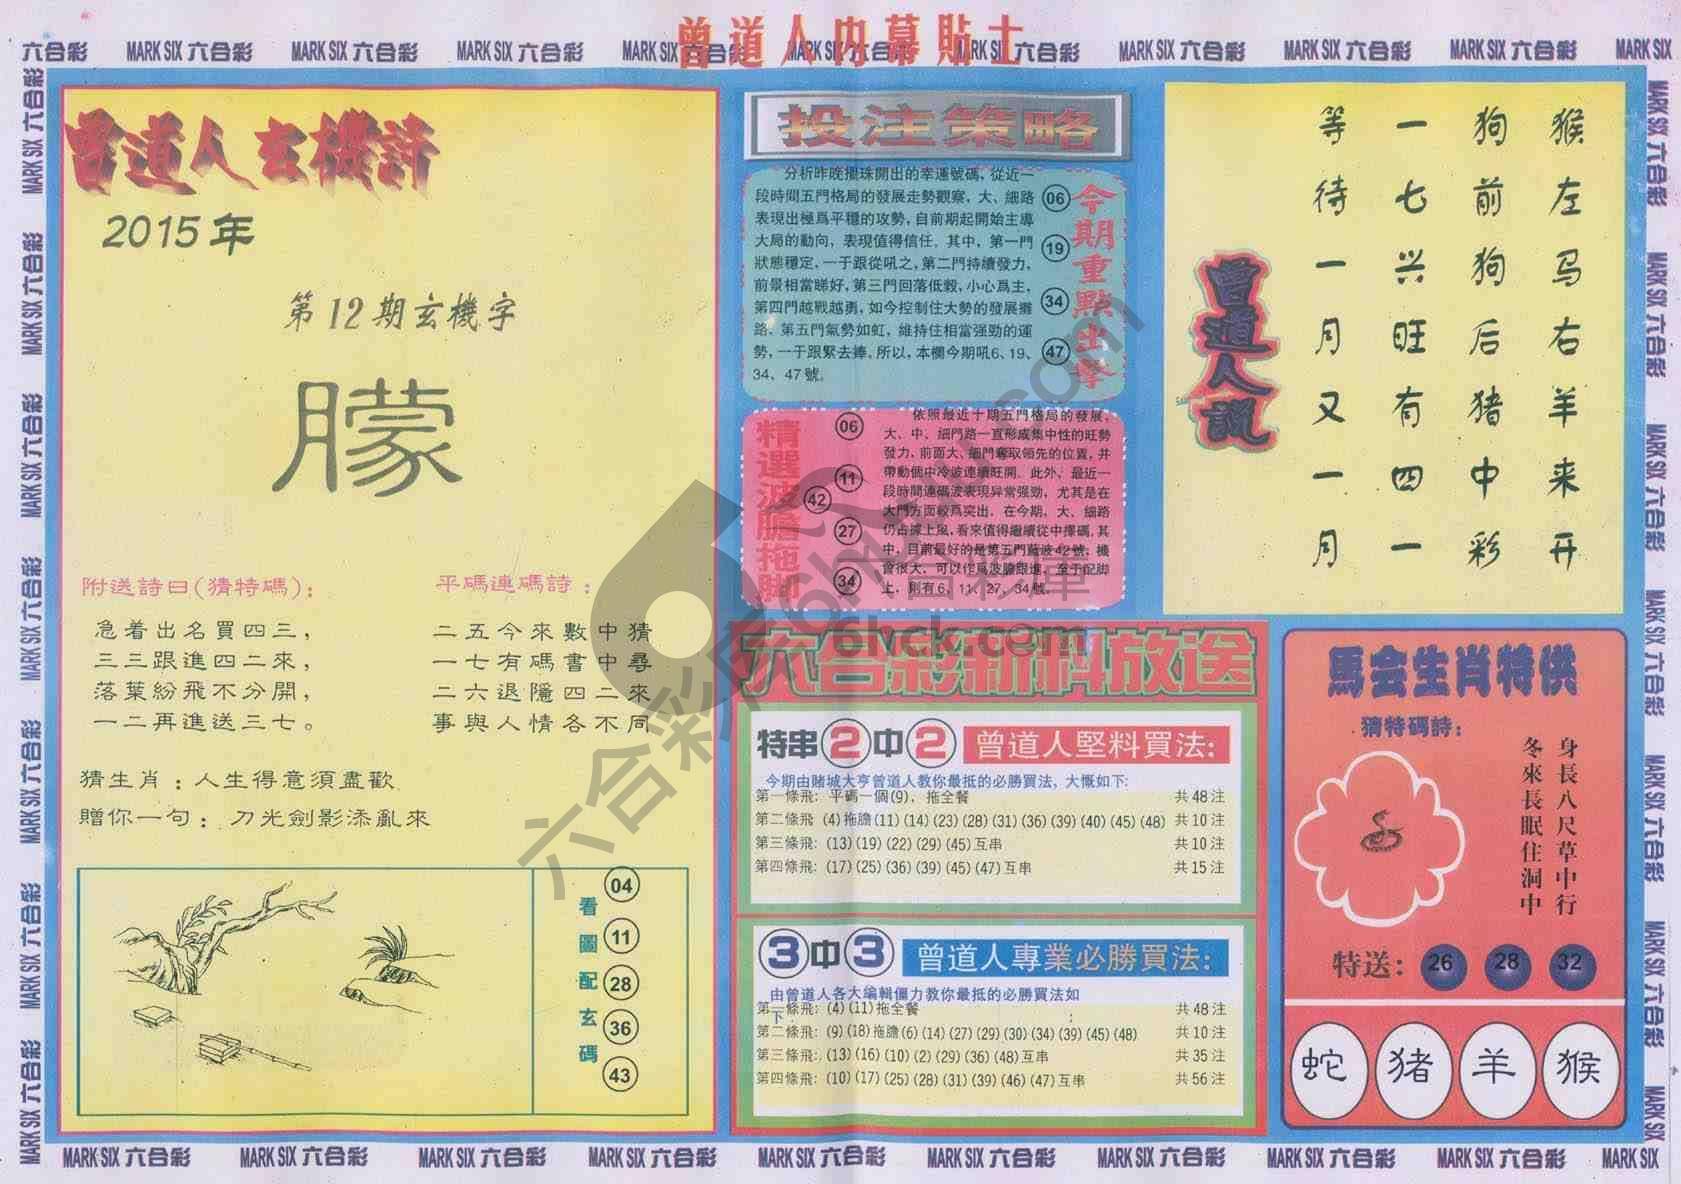 曾道人内幕貼士
六合彩 MARK SIX 六合彩 MARK SIX 六合彩 MARK SIX 六合彩 MARK SIX 六合彩 MARK SIX 六合彩 MARK SIX 六合彩 MARK SIX 六合彩 MARK SIX 六合彩 MARK SIX 六合彩 MARK SIX
曾道人玄機詩
2015年
第12期玄機字
朦
附送詩曰(猜特碼):
急着出名買四三，
三三跟進四二來，
落葉紛飛不分開，
一二再進送三七。
平碼連碼詩：
二五今來數中猜
一七有碼書中尋
二六退隱四二來
事與人情各不同
猜生肖：人生得意須盡歡
贈你一句：刀光劍影添亂來
看圖配玄碼
04
11
28
36
43
投注策略
分析昨晚攪珠開出的幸運號碼，從近一
段時間五門格局的發展走勢觀察，大、細路
表現出極爲平穩的攻勢，自前期起開始主導
大局的動向，表現值得信任。其中，第一門
狀態穩定，一于跟從吼之，第二門持續發力，
前景相當睇好，第三門回落低毂，小心爲主，
第四門越戰越勇，如今控制住大勢的發展攤
路，第五門氣勢如虹，維持住相當强勁的運
勢，一于跟緊去捧。所以，本欄今期吼6、19、
34、47號。
今期重點出擊
06
19
34
47
精選波膽拖脚
06
11
42
27
34
依照最近十期五門格局的發展，
大、中、細門路一直形成集中性的旺勢
發力，前面大、細門奪取領先的位置，并
帶動個中冷波連續旺開。此外、最近一
段時間連碼波表現异常强勁，尤其是在
大門方面較爲突出。在今期，大、細路
仍占據上風，看來值得繼續從中擇碼，其
中，目前最好的是第五門藍波42號，機
會很大，可以作爲波膽跟進，至于配脚
上，則有6、11、27、34號。
六合彩新料放送
特串2中2 曾道人堅料買法:
今期由賭城大亨曾道人教你最抵的必勝買法，大慨如下:
第一條飛: 平碼一個(9)，拖全餐 共48注
第二條飛 (4)拖膽(11)(14)(23)(28)(31)(36)(39)(40)(45)(48) 共10注
第三條飛: (13)(19)(22)(29)(45)互串 共10注
第四條飛: (17)(25)(36)(39)(45)(47)互串 共15注
3中3 曾道人專業必勝買法:
由曾道人各大編輯僵力教你最抵的必勝買法如下:
第一條飛: (4)(11)拖全餐 共48注
第二條飛: (9)(18)拖膽(6)(14)(27)(29)(30)(34)(39)(45)(48) 共10注
第三條飛:.(13)(16)(10)(2)(29)(36)(48)互串 共35注
第四條飛: (10)(17)(25)(28)(31)(39)(46)(47)互串 共56注
猴左马右羊来开
狗前狗后猪中彩
一七兴旺有四一
等待一月又一月
曾道人説
馬会生肖特供
猜特碼詩:
身長八尺草中行
冬來長眠住洞中
特送: 26 28 32
蛇 猪 羊 猴
六合彩库 6hck.com
六合彩库
6hck.com
MARK SIX 六合彩 MARK SIX 六合彩 MARK SIX 六合彩 MARK SIX 六合彩 MARK SIX 六合彩 MARK SIX 六合彩 MARK SIX 六合彩 MARK SIX 六合彩 MARK SIX 六合彩 MARK SIX